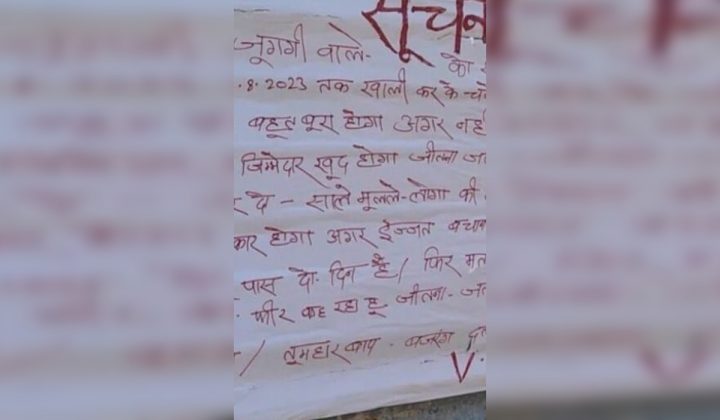 सूचन
जूग्गी वाले- को
.8.2023 तक खाली कर के
बहूत बूरा होगा अगर नही
जिम्मेदार खूद होगा जीतना
दे - साले मूलले-लोगा की
कार होगा अगर ईज्जत बचाना
पास दो दिन है/ फिर मत
फीर कह रहा हू जीतना-
/ तूमहार बाप - बजरंग
V